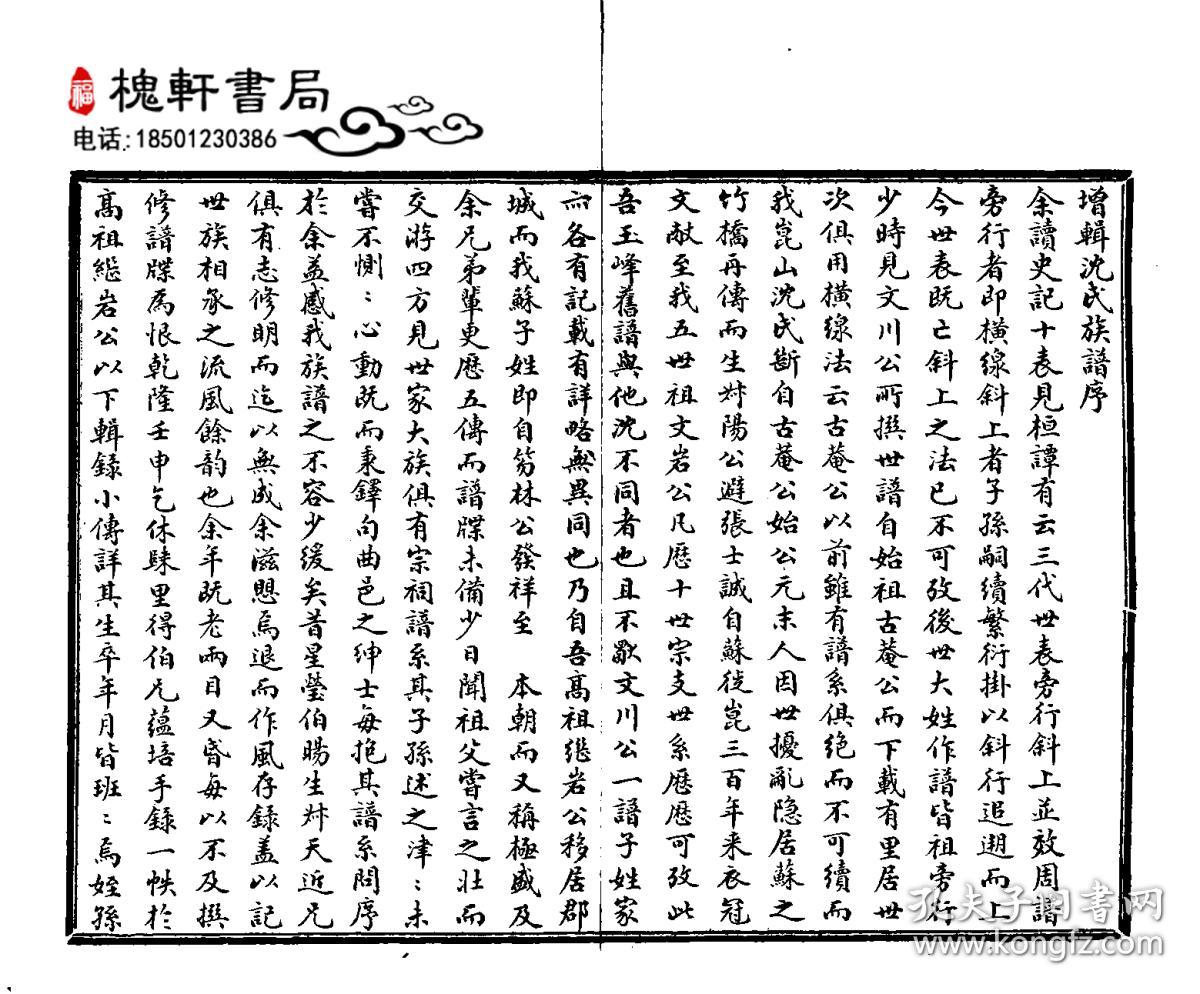 福
槐軒書局
电话:18501230386
增輯沈氏族譜序
余讀史記十表見桓譚有云三代世表旁行斜上並效周譜
旁行者即橫線斜上者子孫嗣續繁衍掛以斜行追遡而上
今世表既亡斜上之法已不可攷後世大姓作譜皆祖旁行
少時見文川公所撰世譜自始祖古菴公而下載有里居世
次俱用橫線法云古菴公以前雖有譜系俱絕而不可續而
我崑山沈氏斷自古菴公始公元末人因世擾亂隐居蘇之
竹橋再傳而生叔陽公避張士誠自蘇徙崑三百年来衣冠
文献至我五世祖文岩公凡歷十世宗支世系歷歷可攷此
吾玉峰舊譜與他沈不同者也且不歇文川公一譜子姓家
而各有記載有詳略無異同也乃自吾高祖繼岩公移居郡
城而我蘇子姓即自笏林公發祥至 本朝而又稱極盛及
余兄弟輩更歷五傳而譜牒未備少日聞祖父嘗言之壯而
交游四方見世家大族俱有宗祠譜系其子孫述之津〻未
嘗不惻〻心動既而秉鐸句曲邑之紳士每抱其譜系問序
於余益感我族譜之不容少緩矣昔星瑩伯暘生叔天近兄
俱有志修明而迄以無成余滋懇焉退而作風存錄盖以記
世族相承之流風餘韵也余年既老兩目又昏每以不及撰
修譜牒為恨乾隆壬申乞休歸里得伯兄蘊培手錄一帙於
高祖繼岩公以下輯錄小傳詳其生卒年月皆班〻焉姪孫
孔夫子旧书网
www.kongfz.com